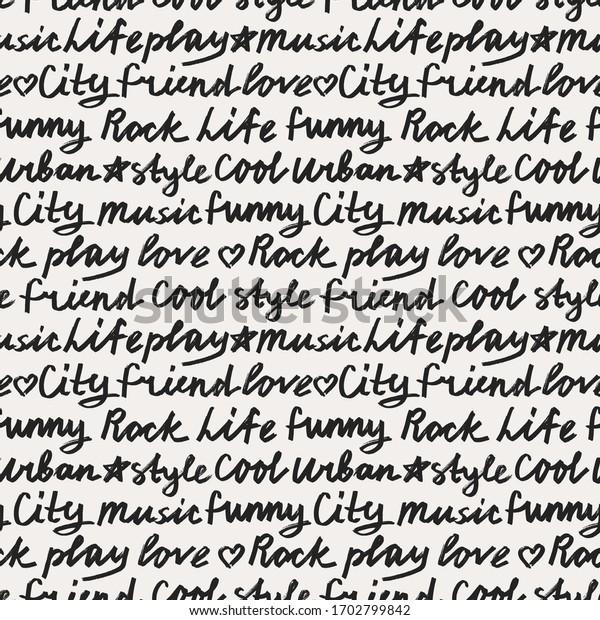 e friend Cool style friend Cool style
usic Life play☆music Life play☆mu
e♡City friend love♡City friend love
funny Rock Life funny Rock Life f
urban☆style Cool urban☆style Cool u
y City music funny City music funny
ck play love ♡Rock play love ♡Roc
e friend Cool style friend Cool style
usic Life play☆music Life play☆mu
e♡City friend love♡City friend love
funny Rock Life funny Rock Life f
urban☆style Cool urban☆style Cool u
y City music funny City music funny
ck play love ♡Rock play love ♡Roc
e friend Cool style friend Cool style
shutterstock
www.shutterstock.com · 1702799842